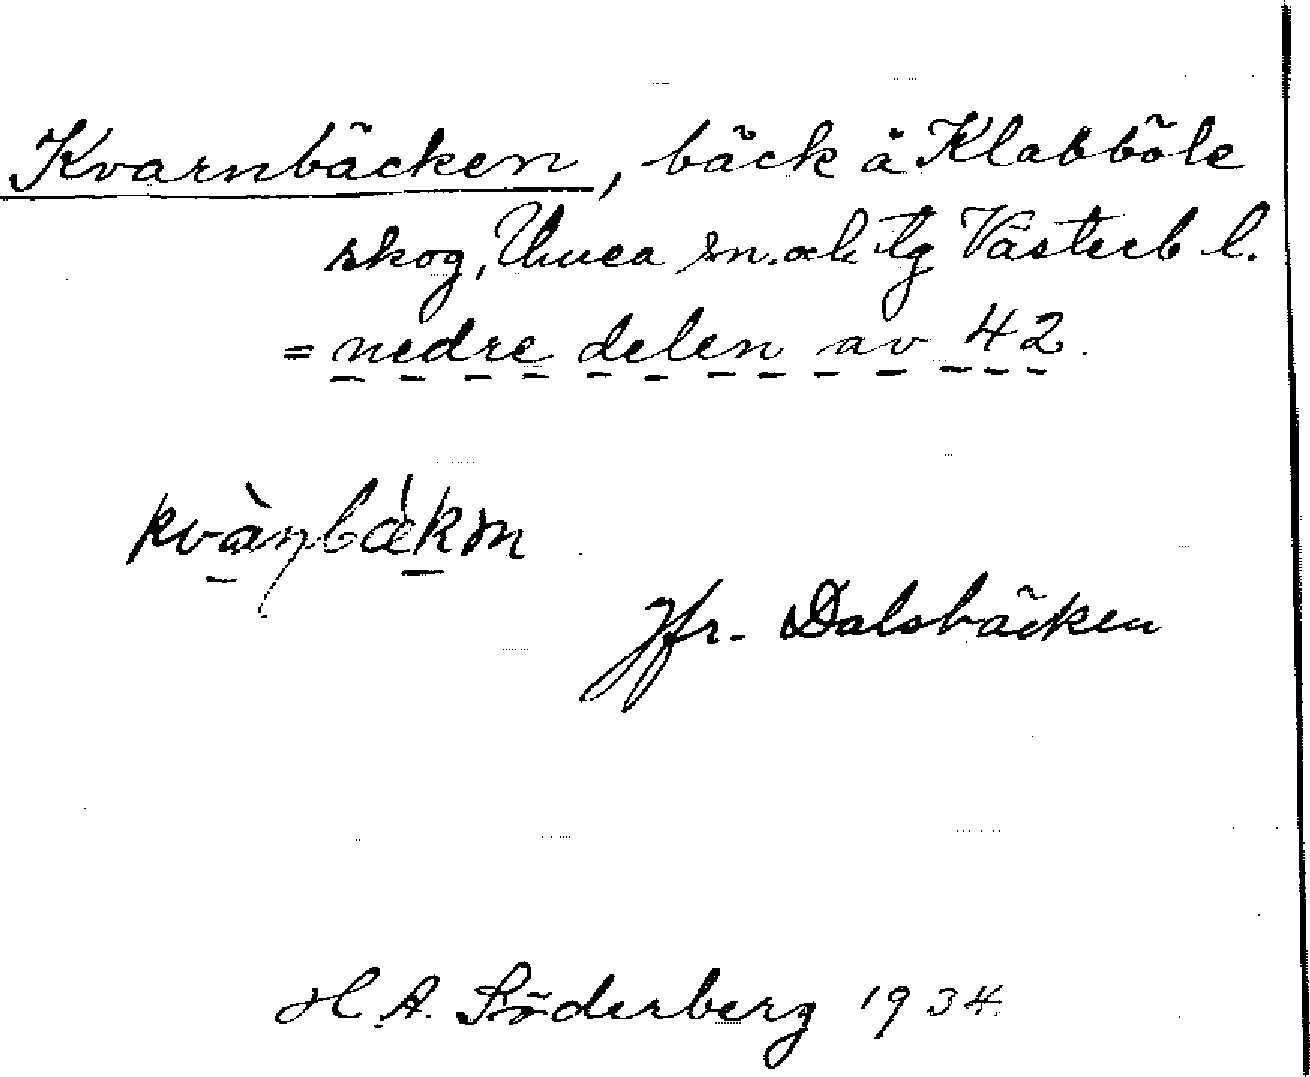 Kvarnbäcken, bäck å Klabböle
skog, Umeå sn. och tg Västerb l.
= nedre delen av 42.
kvànbækm
Jfr. Dalsbäcken
H. A. Söderberg 1934